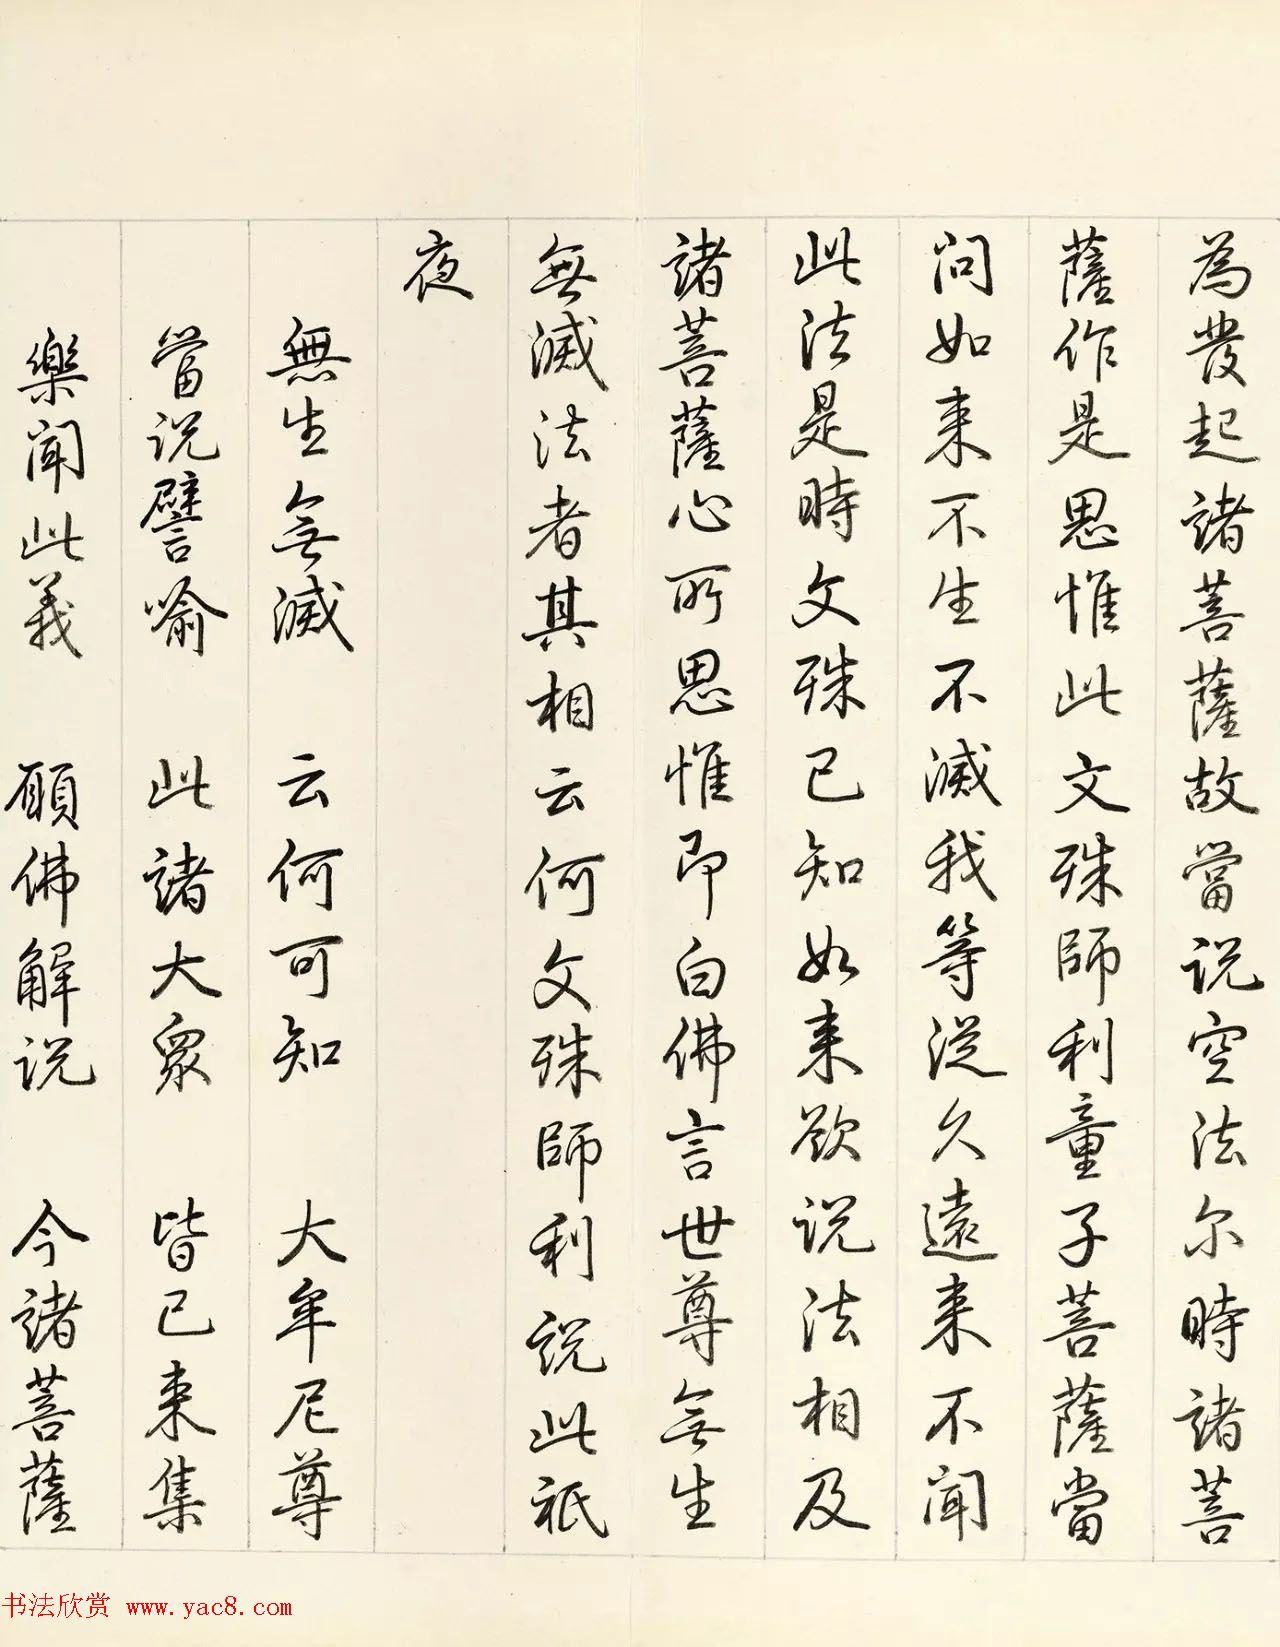 為發起諸菩薩故當说空法尔時諸菩
薩作是思惟此文殊師利童子菩薩當
问如来不生不滅我等從久遠来不闻
此法是時文殊已知如来欲说法相及
諸菩薩心所思惟即白佛言世尊無生
無滅法者其相云何文殊師利说此祇
夜
無生無滅 云何可知 大牟尼尊
當说譬喻 此諸大眾 皆已来集
樂闻此義 願佛解说 今諸菩薩
书法欣赏 www.yac8.com